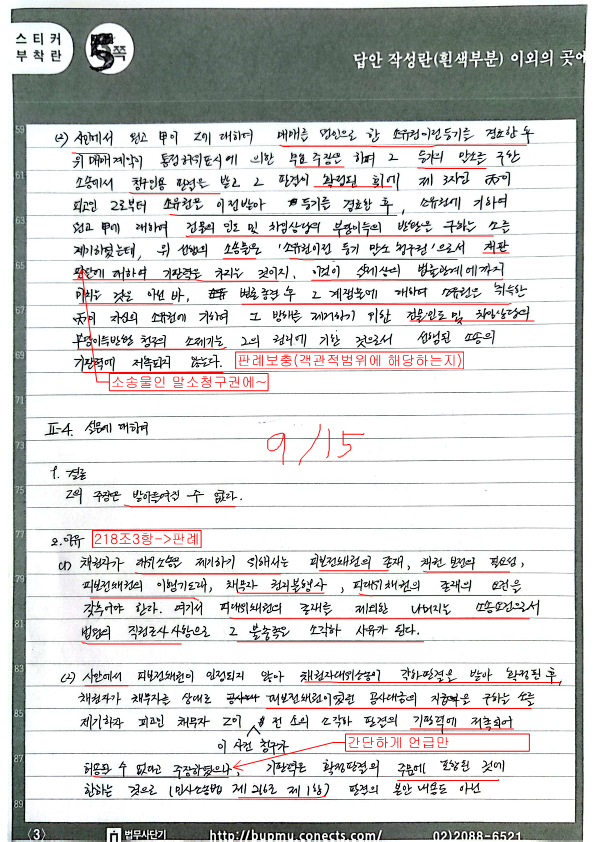 스티커
부착란
5쪽
답안 작성란(흰색부분) 이외의 곳에
59
(2) 사안에서 원고 甲이 乙에 대하여 매매를 원인으로 한 소유권이전등기를 경료한 후
위 매매계약이 통정허위표시에 의한 무효 주장을 하며 그 등기의 말소를 구한
61
소송에서 청구인용 판결을 받고 그 판결이 확정된 뒤에 제3자인 丙이
피고인 乙로부터 소유권을 이전받아 등기를 경료한 후, 소유권에 기하여
63
원고 甲에 대하여 건물의 인도 및 차임상당의 부당이득의 반환을 구하는 소를
제기하였는데, 위 선행의 소송물은 '소유권이전 등기 말소 청구권'으로서 재판
65
에 대하여 기판력을 가지는 것이지, 이것이 실체상의 법률관계에까지
미치는 것은 아닌 바, 변론종결 후 그 계쟁물에 대하여 소유권을 취득한
67
丙이 자신의 소유권에 기하여 그 방해를 제거하기 위한 건물인도 및 차임상당의
부당이득반환 청구의 소제기는 그의 권리에 기한 것으로서 선행된 소송의
69
기판력에 저촉되지 않는다. 판례보충(객관적범위에 해당하는지)
소송물인 말소청구권에~
71
II-4. 설문에 대하여
73
9/15
1. 결론
75
乙의 주장은 받아들여질 수 없다.
77
2. 이유 218조3항->판례
(1) 채권자가 대위소송을 제기하기 위해서는 피보전채권의 존재, 채권 보전의 필요성,
79
피보전채권의 이행기도래, 채무자 권리불행사, 피대위채권의 존재의 요건을
갖추어야 한다. 여기서 피대위채권의 존재를 제외한 나머지는 소송요건으로서
81
법원의 직권조사사항으로 그 불충족은 소각하 사유가 된다.
83
(2) 사안에서 피보전채권이 인정되지 않아 채권자대위소송이 각하판결을 받아 확정된 후,
채권자가 채무자를 상대로 피보전채권이었던 공사대금의 지급을 구하는 소를
85
제기하자 피고인 채무자 乙이 전 소의 소각하 판결의 기판력에 저촉되어
이 사건 청구가
간단하게 언급만
87
허용될 수 없다고 주장하였으나, 기판력은 확정판결의 주문에 포함된 것에
한하는 것으로 (민사소송법 제216조 제1항) 판결의 본안 내용도 아닌
89
〈3〉
법무사단기
http://bupmu.conects.com/
02)2088-6521